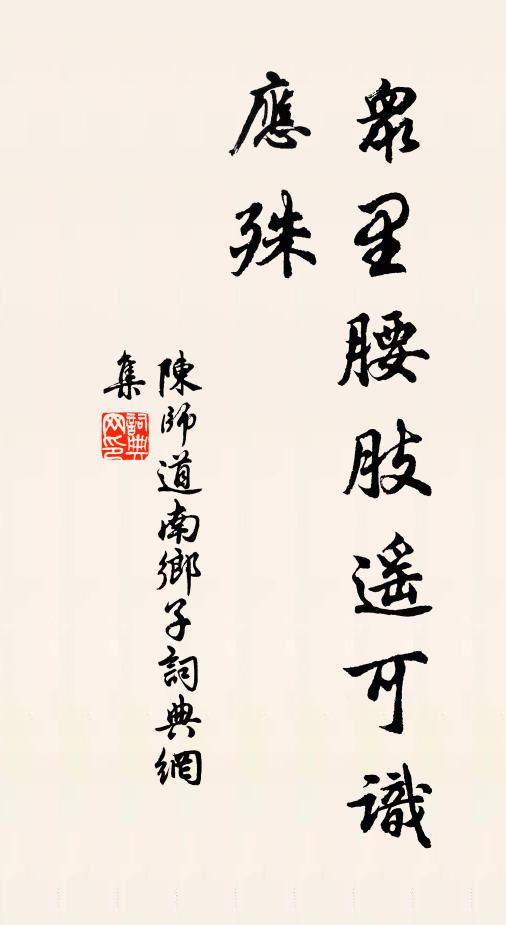 衆里腰肢遥可識
應殊
陳師道南鄉子詞典網
集
詞典網印